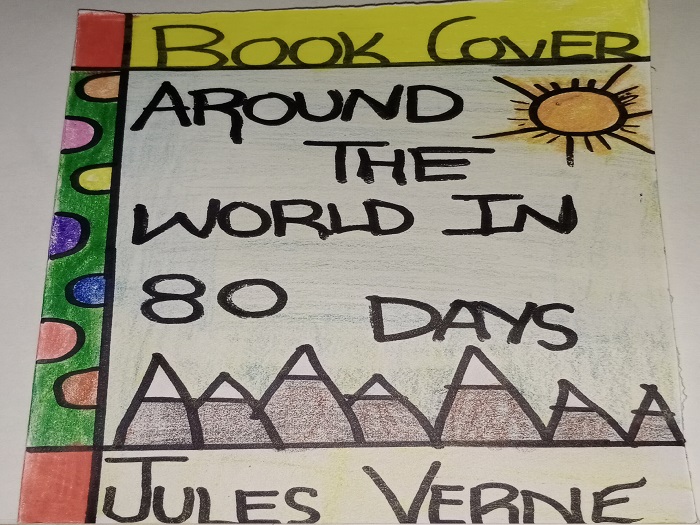 BOOK COVER
AROUND
THE
WORLD IN
80 DAYS
JULES VERNE